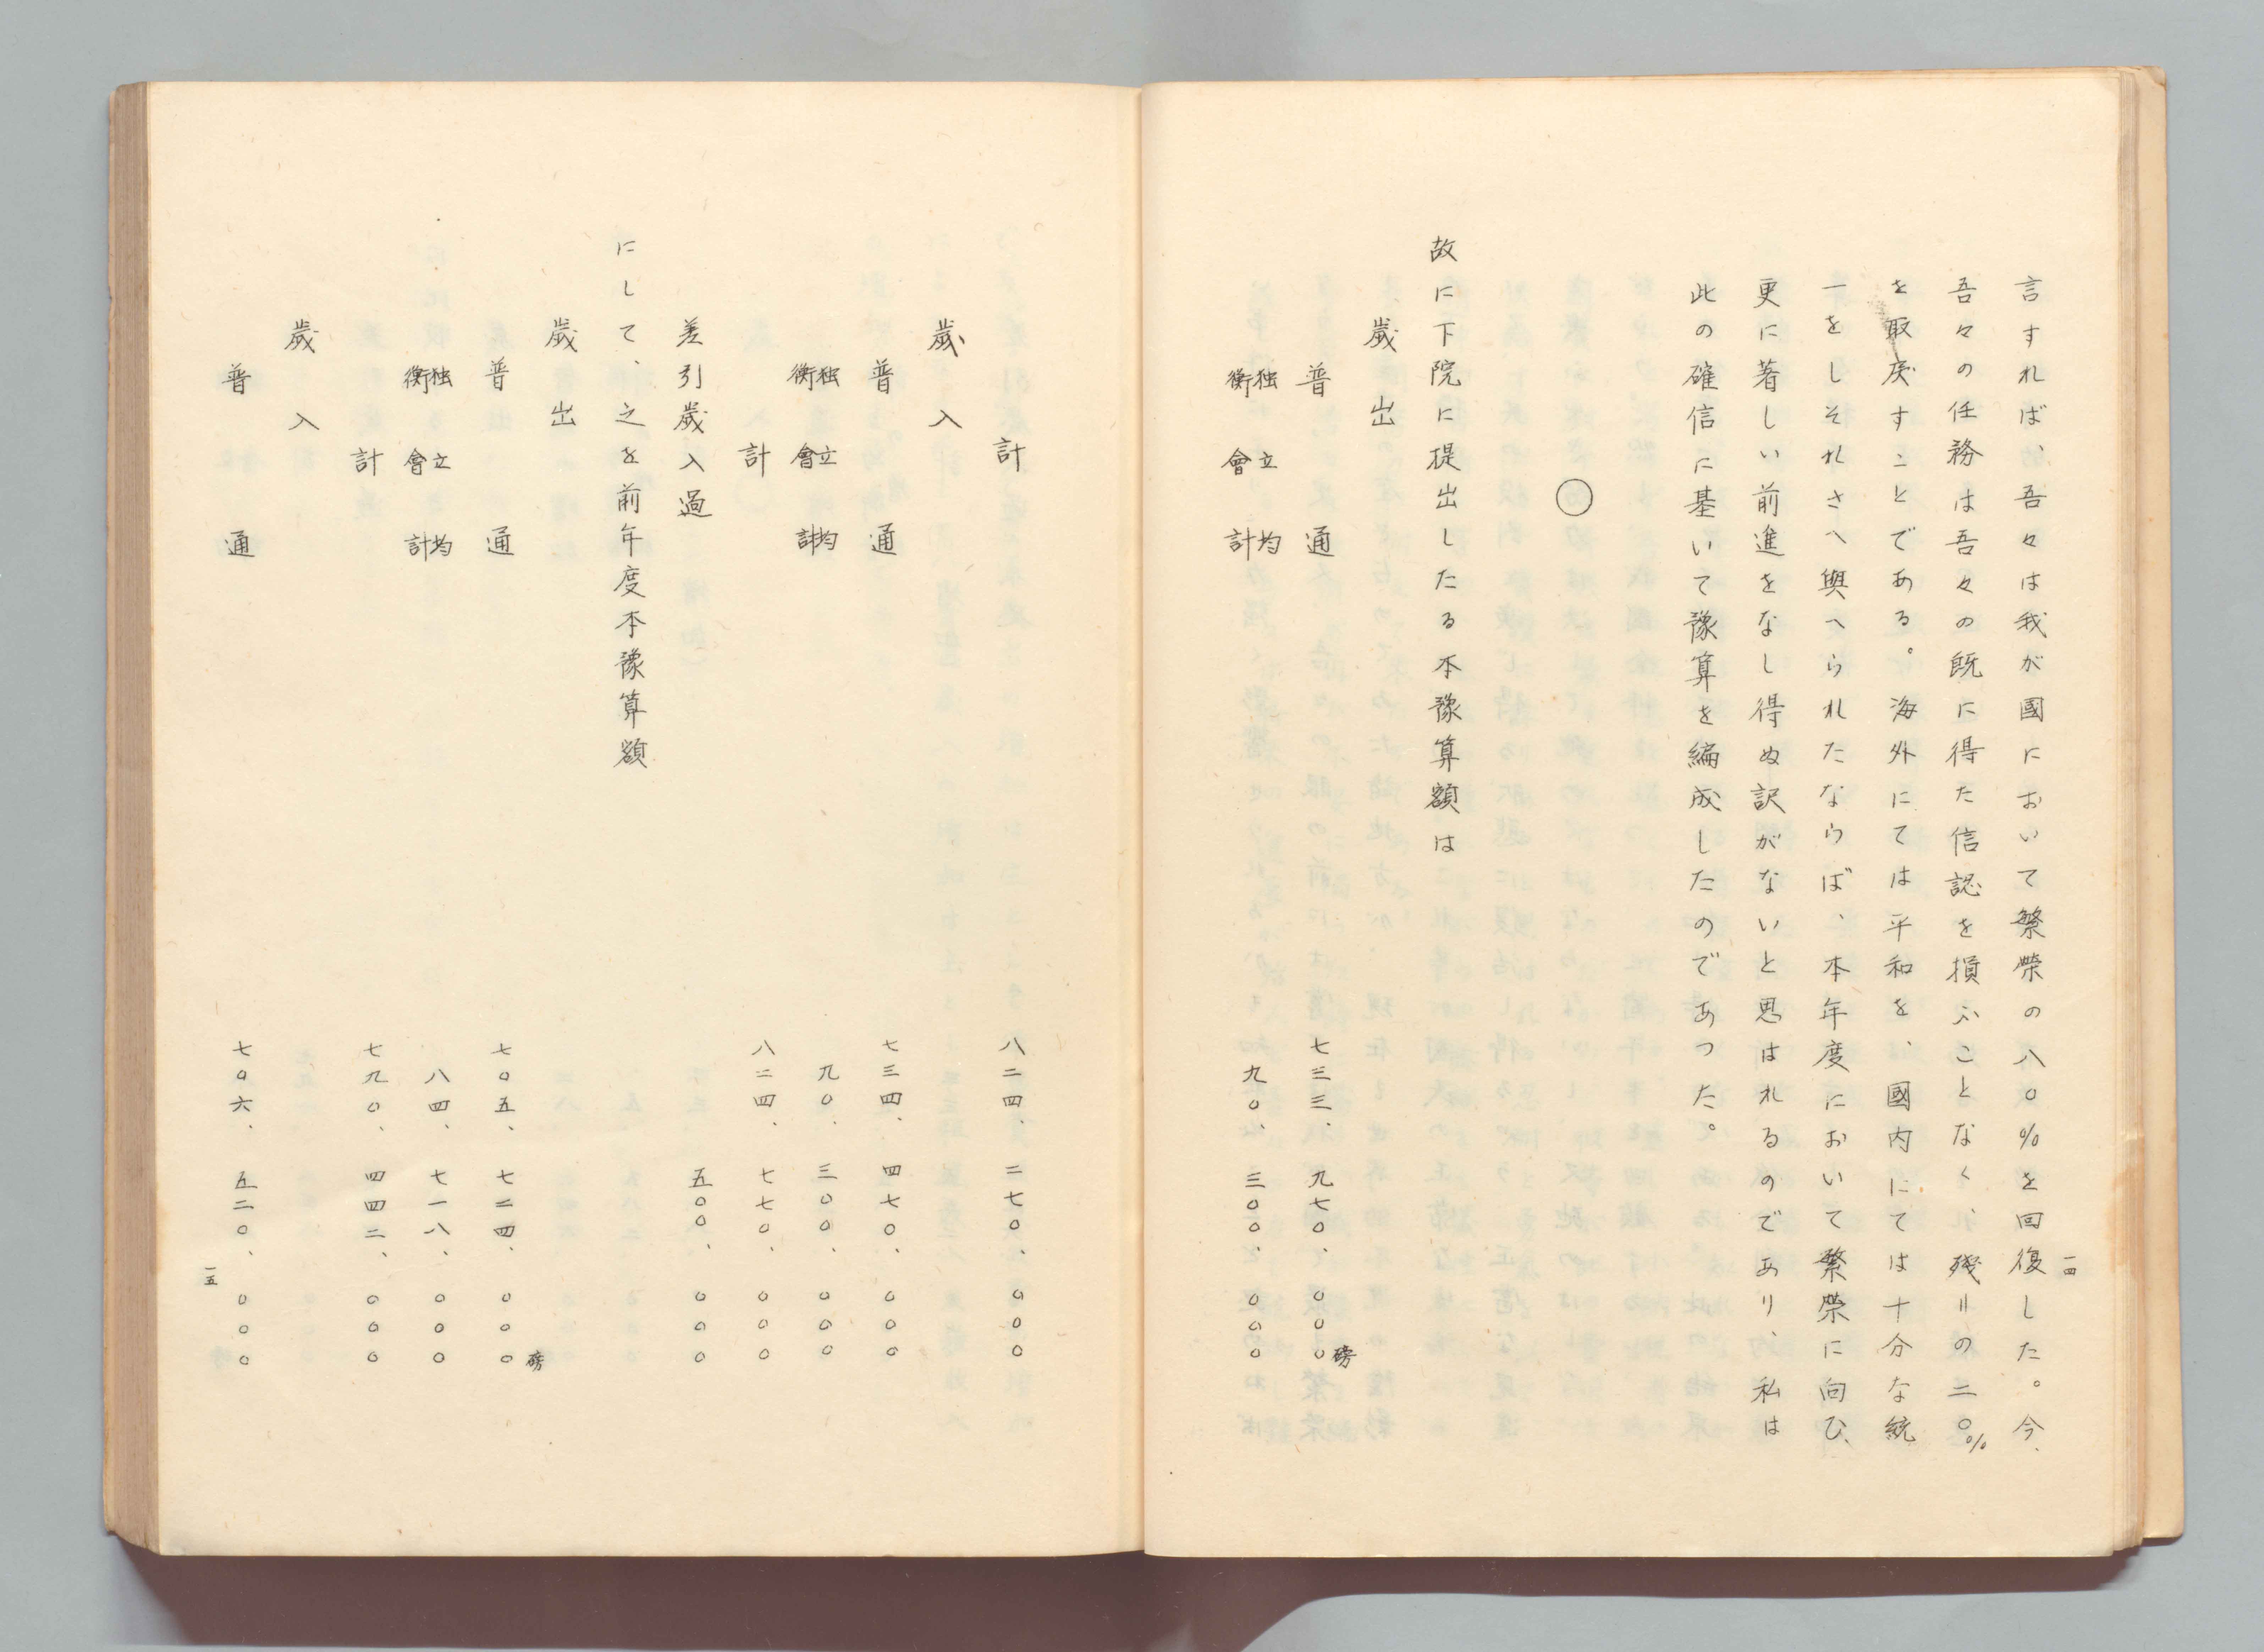 言すれば、吾々は我が國において繁榮の八〇%を回復した。今、
吾々の任務は吾々の既に得た信認を損ふことなく、殘りの二〇%
を取戻すことである。海外にては平和を、國内にては十分な統
一をしそれさへ與へられたならば、本年度において繁榮に向ひ、
更に著しい前進をなし得ぬ訳がないと思はれるのであり、私は
此の確信に基いて豫算を編成したのであつた。
〇
故に下院に提出したる本豫算額は
歳出
普通 七三三、九七〇、〇〇〇磅
独立均衡會計 九〇、三〇〇、〇〇〇
一四
計 八二四、二七〇、〇〇〇
歳入
普通 七三四、四七〇、〇〇〇
独立均衡會計 九〇、三〇〇、〇〇〇
計 八二四、七七〇、〇〇〇
差引歳入過 五〇〇、〇〇〇
にして、之を前年度本豫算額
歳出
普通 七〇五、七二四、〇〇〇磅
独立均衡會計 八四、七一八、〇〇〇
計 七九〇、四四二、〇〇〇
歳入
普通 七〇六、五二〇、〇〇〇
一五